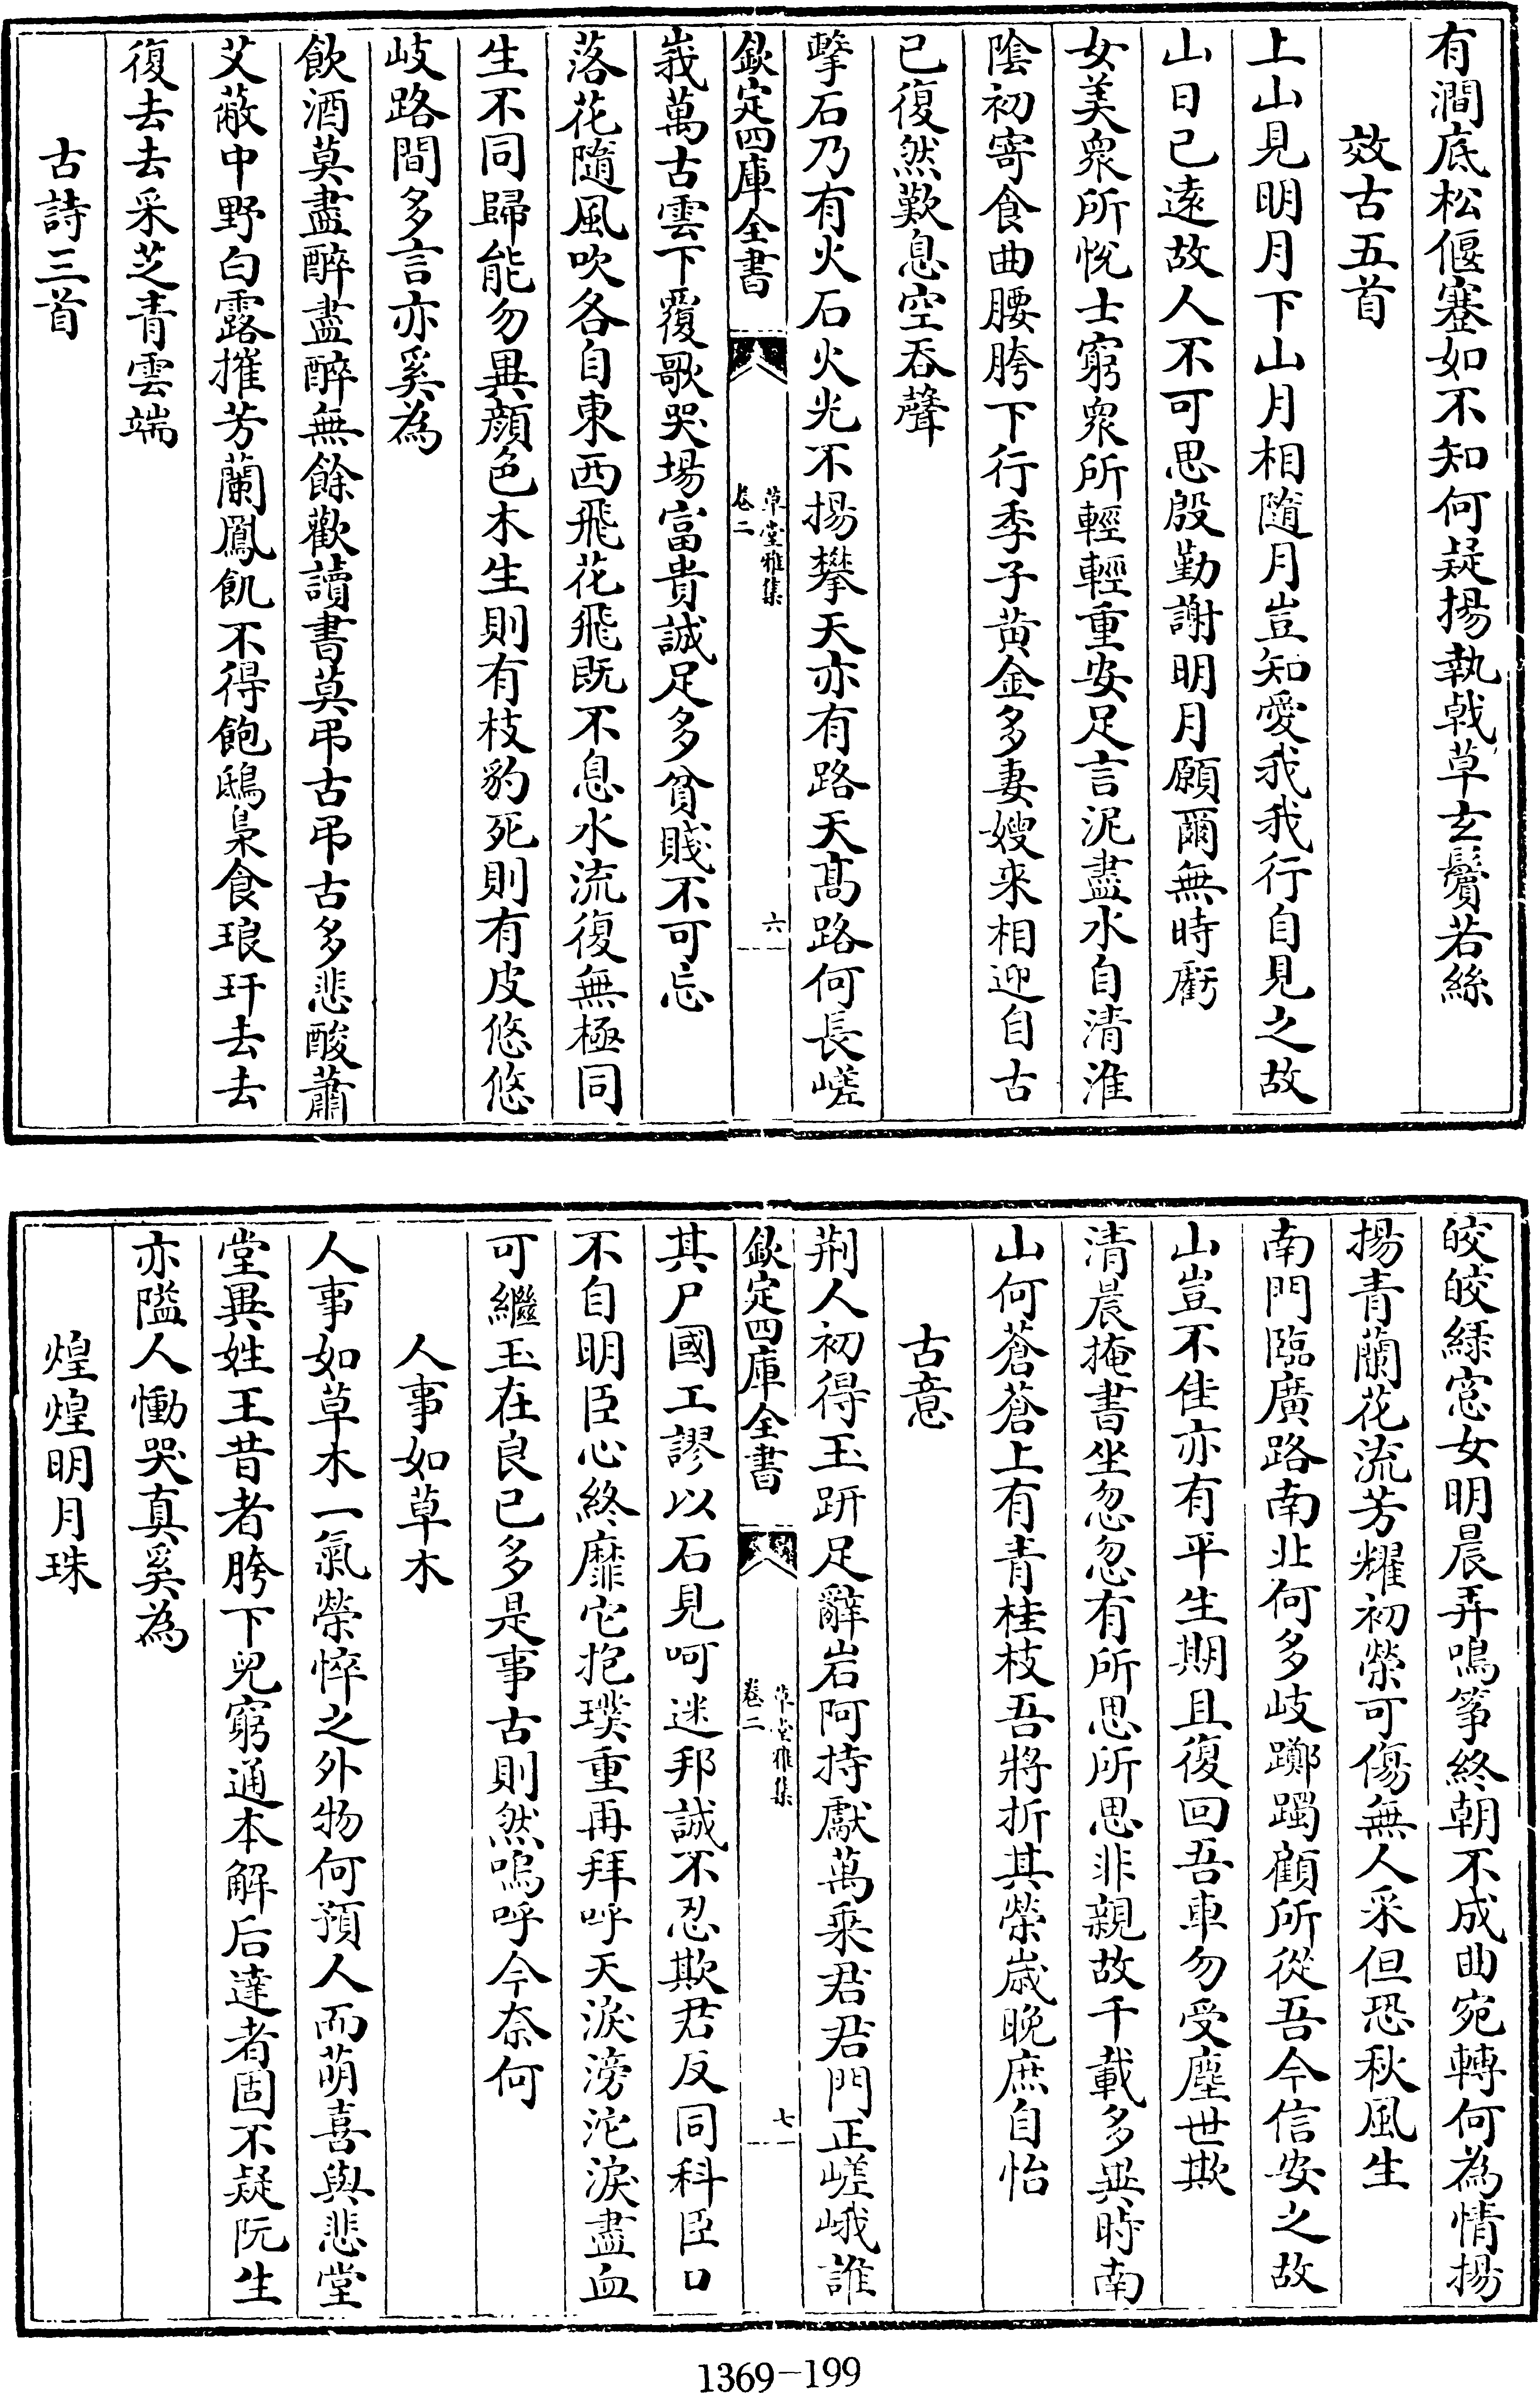 有澗底松偃蹇如不知何疑揚執戟草玄鬢若絲
效古五首
上山見明月下山月相隨月豈知愛我我行自見之故
山日已遠故人不可思殷勤謝明月願爾無時虧
女美衆所悅士窮衆所輕輕重安足言泥盡水自清淮
陰初寄食曲腰胯下行季子黄金多妻嫂来相迎自古
已復然歎息空吞聲
擊石乃有火石火光不揚攀天亦有路天高路何長嵯
欽定四庫全書
草堂雅集
卷二
六
峩萬古雲下覆歌哭場富貴誠足多貧賤不可忘
落花隨風吹各自東西飛花飛既不息水流復無極同
生不同歸能勿異顔色木生則有枝豹死則有皮悠悠
岐路間多言亦奚為
飲酒莫盡醉盡醉無餘歡讀書莫弔古弔古多悲酸蕭
艾蔽中野白露摧芳蘭鳳飢不得飽鴟梟食琅玕去去
復去去采芝青雲端
古詩三首
皎皎緑窓女明晨弄鳴筝終朝不成曲宛轉何為情揚
揚青蘭花流芳耀初榮可傷無人采但恐秋風生
南門臨廣路南北何多岐躑躅顧所從吾今信安之故
山豈不佳亦有平生期且復回吾車勿受塵世欺
清晨掩書坐忽忽有所思所思非親故千載多異時南
山何蒼蒼上有青桂枝吾將折其榮歲晚庶自怡
古意
荆人初得玉趼足辭岩阿持獻萬乘君君門正嵯峨誰
欽定四庫全書
草堂雅集
卷二
七
其尸國工謬以石見呵迷邦誠不忍欺君反同科臣口
不自明臣心終靡它抱璞重再拜呼天淚滂沱淚盡血
可繼玉在良已多是事古則然嗚呼今奈何
人事如草木
人事如草木一氣榮悴之外物何預人而萌喜與悲堂
堂異姓王昔者胯下兒窮通本解后達者固不疑阮生
亦隘人慟哭真奚為
煌煌明月珠
1369-199